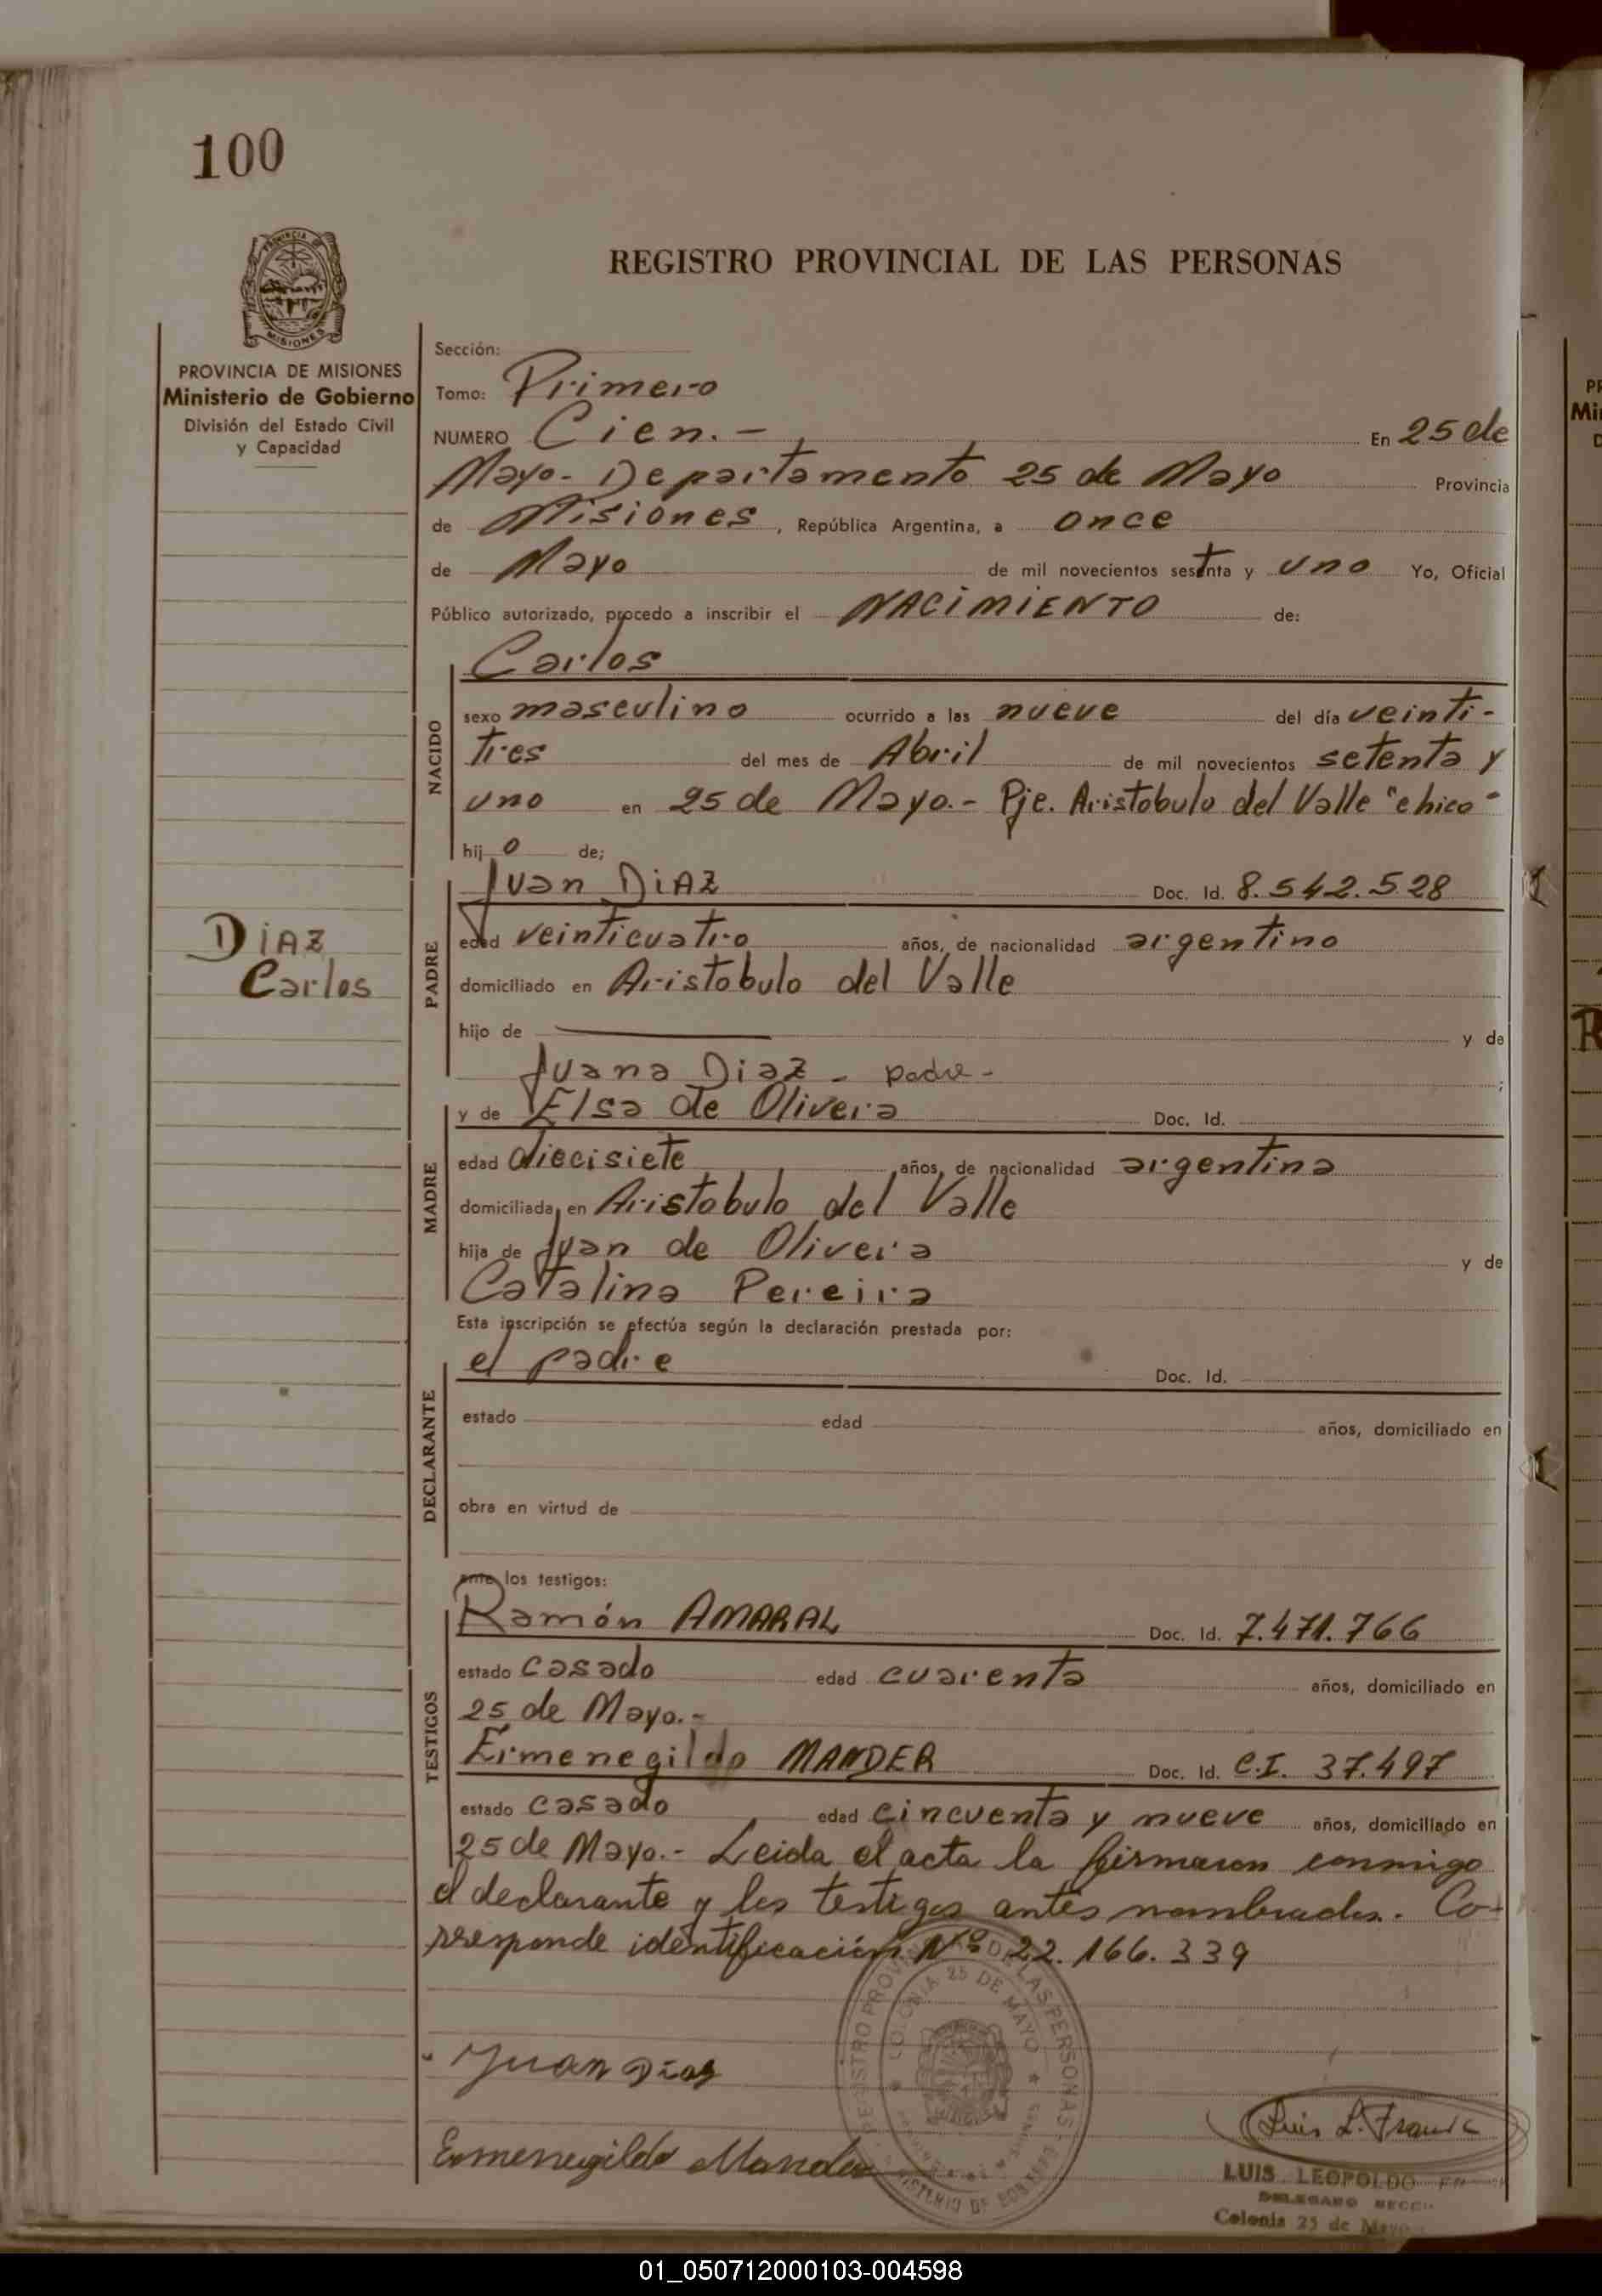 100
REGISTRO PROVINCIAL DE LAS PERSONAS
PROVINCIA DE MISIONES
Ministerio de Gobierno
División del Estado Civil
y Capacidad
Sección:
Tomo: Primero
NUMERO Cien.- En 25 de
Mayo- Departamento 25 de Mayo Provincia
de Misiones, República Argentina, a once
de Mayo de mil novecientos setenta y uno Yo, Oficial
Público autorizado, procedo a inscribir el NACIMIENTO de:
NACIDO
Carlos
sexo masculino ocurrido a las nueve del día veinti-
tres del mes de Abril de mil novecientos setenta y
uno en 25 de Mayo.- Pje. Aristobulo del Valle "chico"
hijo de;
DIAZ
Carlos
PADRE
Juan DIAZ Doc. Id. 8.542.528
edad veinticuatro años, de nacionalidad argentino
domiciliado en Aristobulo del Valle
hijo de y de
Juana Diaz - padre- ;
MADRE
y de Elsa de Olivera Doc. Id.
edad diecisiete años, de nacionalidad argentina
domiciliada en Aristobulo del Valle
hija de Juan de Olivera y de
Catalina Pereira
Esta inscripción se efectúa según la declaración prestada por:
DECLARANTE
el padre Doc. Id.
estado edad años, domiciliado en
obra en virtud de
ante los testigos:
TESTIGOS
Ramón AMARAL Doc. Id. 7.471.766
estado casado edad cuarenta años, domiciliado en
25 de Mayo.-
Ermenegildo MANDER Doc. Id. C.I. 37.497
estado casado edad cincuenta y nueve años, domiciliado en
25 de Mayo.- Leida el acta la firmaron conmigo
el declarante y los testigos antes nombrados. Co-
rresponde identificación Nº 22.166.339
REGISTRO PROVINCIAL DE LAS PERSONAS
COLONIA 25 DE MAYO
MINISTERIO DE GOBIERNO
Juan Diaz
Ermenegildo Mander
Luis L. Franck
LUIS LEOPOLDO
DELEGADO SECC
Colonia 25 de Mayo
01_050712000103-004598